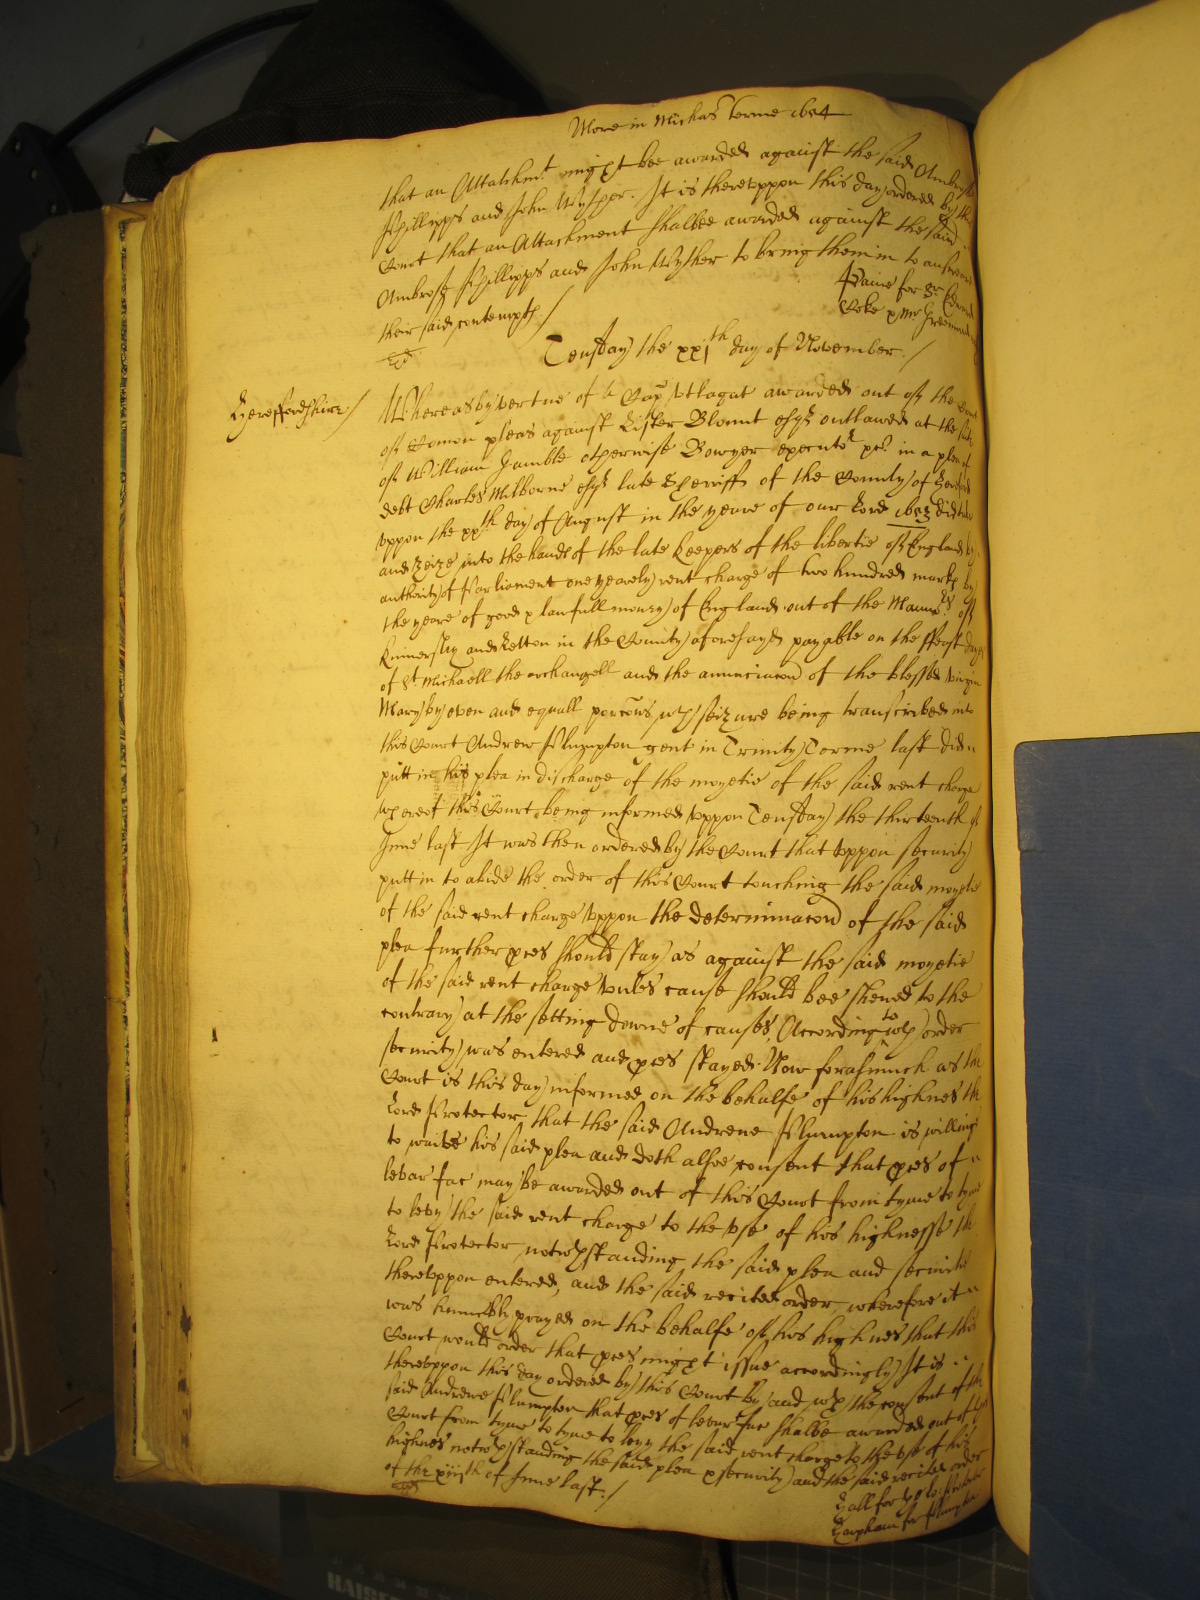 More in Michas terme 1654
that an Attachmt might bee awarded against the said Ambrose
Phillipps and John Wyther. It is therevppon this day ordered by the
Court that an Attachment shalbee awarded against the said
Ambrose Phillipps and John Wyther to bring them in to answere
their said contempts /
Paine for Sr Edward
Coke p Mr
Teusday the xxjth day of November. /
Hereffordshire /
Whereas by vertue of a Cap vtlagat awarded out of the Court
of Comon pleas against Lister Blount esqr outlawed at the suite
of William Gamble otherwise Bowyer executor &c in a plea of
debt Charles Milborne esqr late Sheriff of the County of Hereford
vppon the xxth day of August in the yeare of our Lord 1653 did take
and seize into the hands of the late keepers of the libertie of England by
authority of Parliament one yearely rent charge of two hundred marks by
the yeare of good & lawfull money of England out of the Mannors of
Kinnersley and Letton in the County aforesayd payable on the ffeast dayes
of St Michaell the archangell and the annunciacon of the blessed virgin
Mary by even and equall porcons wch seizure being transcribed into
this Court Andrew Plumpton gent in Trinity Terme last did
putt in his plea in discharge of the moyetie of the said rent charge
whereof this Court being informed vppon Teusday the thirteenth of
June last It was then ordered by the Court that vppon security
putt in to abide the order of this Court touching the said moyetie
of the said rent charge vppon the determinacon of the said
plea further pces should stay as against the said moyetie
of the said rent charge vnles cause should bee shewed to the
contrary at the setting downe of causes, According to wch order
security was entered and pces stayed. Now forasmuch as the
Court is this day informed on the behalfe of his highnes the
Lord Protector that the said Andrewe Plumpton is willing
to waive his said plea and doth alsoe consent that pces of
levar fac may be awarded out of this Court from tyme to tyme
to levy the said rent charge to the vse of his highnesse the
Lord Protector notwthstanding the said plea and securitie
therevppon entered, and the said recited order, wherefore it
was humbly prayed on the behalfe of his highnes that this
Court would order that pces might issue accordingly It is
therevppon this day ordered by this Court by and wth the consent of the
said Andrewe Plumpton that pces of levar fac shalbe awarded out of this
Court from tyme to tyme to levy the said rent charge to the vse of his
highnes notwthstanding the said plea & security and the said recited order
of the xiijth of June last. /
Hall for
for Plumpton